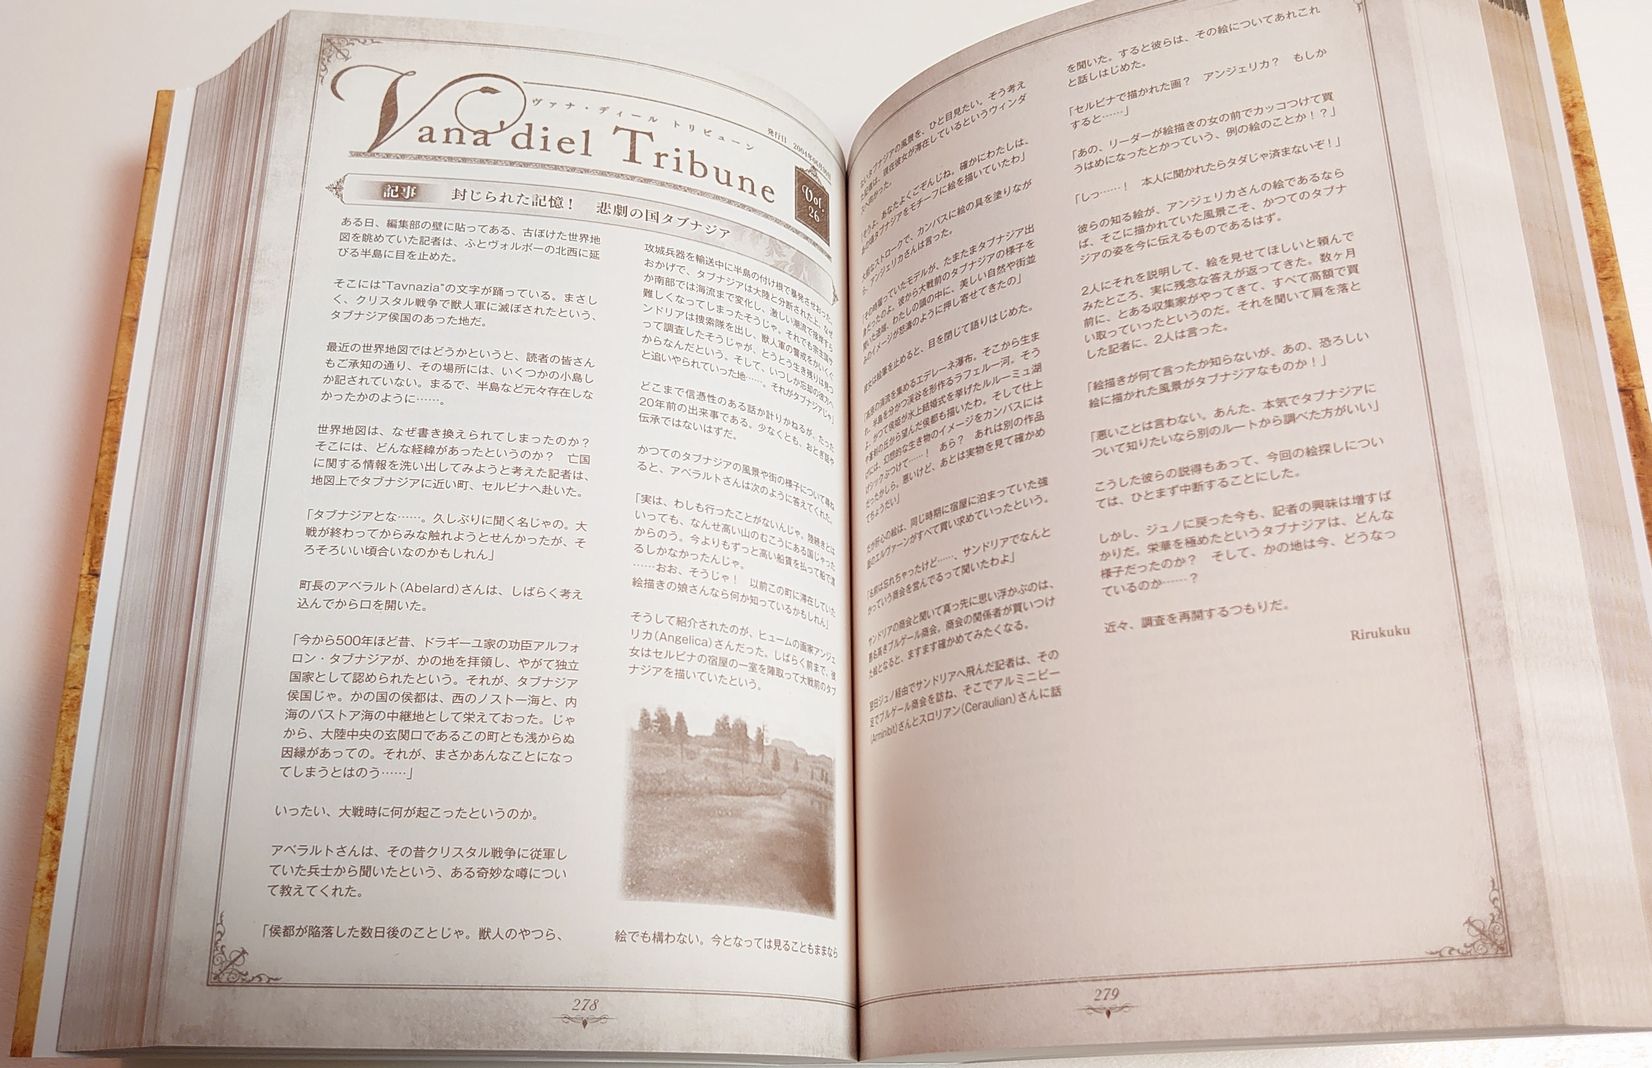 ヴァナ・ディール トリビューン
Vana'diel Tribune
発行日
Vol.
26
記事 封じられた記憶! 悲劇の国タブナジア
ある日、編集部の壁に貼ってある、古ぼけた世界地
図を眺めていた記者は、ふとヴォルボーの北西に延
びる半島に目を止めた。
そこには“Tavnazia”の文字が踊っている。まさし
く、クリスタル戦争で獣人軍に滅ぼされたという、
タブナジア侯国のあった地だ。
最近の世界地図ではどうかというと、読者の皆さん
もご承知の通り、その場所には、いくつかの小島し
か記されていない。まるで、半島など元々存在しな
かったかのように……。
世界地図は、なぜ書き換えられてしまったのか?
そこには、どんな経緯があったというのか? 亡国
に関する情報を洗い出してみようと考えた記者は、
地図上でタブナジアに近い町、セルビナへ赴いた。
「タブナジアとな……。久しぶりに聞く名じゃの。大
戦が終わってからみな触れようとせんかったが、そ
ろそろいい頃合いなのかもしれん」
町長のアベラルト(Abelard)さんは、しばらく考え
込んでから口を開いた。
「今から500年ほど昔、ドラギーユ家の功臣アルフォ
ロン・タブナジアが、かの地を拝領し、やがて独立
国家として認められたという。それが、タブナジア
侯国じゃ。かの国の侯都は、西のノストー海と、内
海のバストア海の中継地として栄えておった。じゃ
から、大陸中央の玄関口であるこの町とも浅からぬ
因縁があっての。それが、まさかあんなことになっ
てしまうとはのう……」
いったい、大戦時に何が起こったというのか。
アベラルトさんは、その昔クリスタル戦争に従軍し
ていた兵士から聞いたという、ある奇妙な噂につい
て教えてくれた。
「侯都が陥落した数日後のことじゃ。獣人のやつら、
攻城兵器を輸送中に半島の付け根で暴発させおった。
おかげで、タブナジアは大陸と分断された上、なぜ
か南部では海流まで変化し、激しい潮流で接岸する
難しくなってしまったそうじゃ。それでも宗主国サ
ンドリアは捜索隊を出し、獣人軍の警戒をかいくぐ
って調査したそうじゃが、とうとう生き残りは見つ
からなんだという。そして、いつしか忘却の彼方へ
と追いやられていった地……。それがタブナジアじゃ」
どこまで信憑性のある話か計りかねるが、たった
20年前の出来事である。少なくとも、おとぎ話や
伝承ではないはずだ。
かつてのタブナジアの風景や街の様子について尋ね
ると、アベラルトさんは次のように答えてくれた。
「実は、わしも行ったことがないんじゃ。陸続きとは
いっても、なんせ高い山のむこうにある国じゃった
からのう。今よりもずっと高い船賃を払って船で渡
るしかなかったんじゃ。
……おお、そうじゃ! 以前この町に滞在していた
絵描きの娘さんなら何か知っているかもしれん」
そうして紹介されたのが、ヒュームの画家アンジェ
リカ(Angelica)さんだった。しばらく前まで、彼
女はセルビナの宿屋の一室を陣取って大戦前のタブ
ナジアを描いていたという。
絵でも構わない。今となっては見ることもままなら
278
ないタブナジアの風景を、ひと目見たい。そう考え
た記者は、現在彼女が滞在しているというウィンダ
スへ向かった。
「そうよ、あなたよくごぞんじね。確かにわたしは、
あの頃タブナジアをモチーフに絵を描いていたわ」
大胆なストロークで、カンバスに絵の具を塗りなが
ら、アンジェリカさんは言った。
「その頃雇っていたモデルが、たまたまタブナジア出
身だったのよ。彼から大戦前のタブナジアの様子を
聞いた途端、わたしの頭の中に、美しい自然や街並
みのイメージが怒濤のように押し寄せてきたの」
彼女は絵筆を止めると、目を閉じて語りはじめた。
源流を集めるエデレーネ瀑布。そこから生ま
れ、半島を分かつ渓谷を形作るラフェルー河。そう
よ、かつて侯妃が水上結婚式を挙げたルルーミュ湖
や番町の丘から望んだ侯都も描いたわ。そして仕上
げには、幻想的な生き物のイメージをカンバスには
ゲシックぶつけて……! あら? あれは別の作品
だったかしら。悪いけど、あとは実物を見て確かめ
てちょうだい」
だが肝心の絵は、同じ時期に宿屋に泊まっていた強
面のエルヴァーンがすべて買い求めていったという。
「名前は忘れちゃったけど……、サンドリアでなんと
かっていう商会を営んでるって聞いたわよ」
サンドリアの商会と聞いて真っ先に思い浮かぶのは、
悪名高きブルゲール商会。商会の関係者が買いつけ
た絵となると、ますます確かめてみたくなる。
翌日ジュノ経由でサンドリアへ飛んだ記者は、その
足でブルゲール商会を訪ね、そこでアルミニビー
(Aminibit)さんとスロリアン(Ceraulian)さんに話
を聞いた。すると彼らは、その絵についてあれこれ
と話しはじめた。
「セルビナで描かれた画? アンジェリカ? もしか
すると……」
「あの、リーダーが絵描きの女の前でカッコつけて買
うはめになったとかっていう、例の絵のことか!?」
「しっ……! 本人に聞かれたらタダじゃ済まないぞ!」
彼らの知る絵が、アンジェリカさんの絵であるなら
ば、そこに描かれていた風景こそ、かつてのタブナ
ジアの姿を今に伝えるものであるはず。
2人にそれを説明して、絵を見せてほしいと頼んで
みたところ、実に残念な答えが返ってきた。数ヶ月
前に、とある収集家がやってきて、すべて高額で買
い取っていったというのだ。それを聞いて肩を落と
した記者に、2人は言った。
「絵描きが何て言ったか知らないが、あの、恐ろしい
絵に描かれた風景がタブナジアなものか!」
「悪いことは言わない。あんた、本気でタブナジアに
ついて知りたいなら別のルートから調べた方がいい」
こうした彼らの説得もあって、今回の絵探しについ
ては、ひとまず中断することにした。
しかし、ジュノに戻った今も、記者の興味は増すば
かりだ。栄華を極めたというタブナジアは、どんな
様子だったのか? そして、かの地は今、どうなっ
ているのか……?
近々、調査を再開するつもりだ。
Rirukuku
279